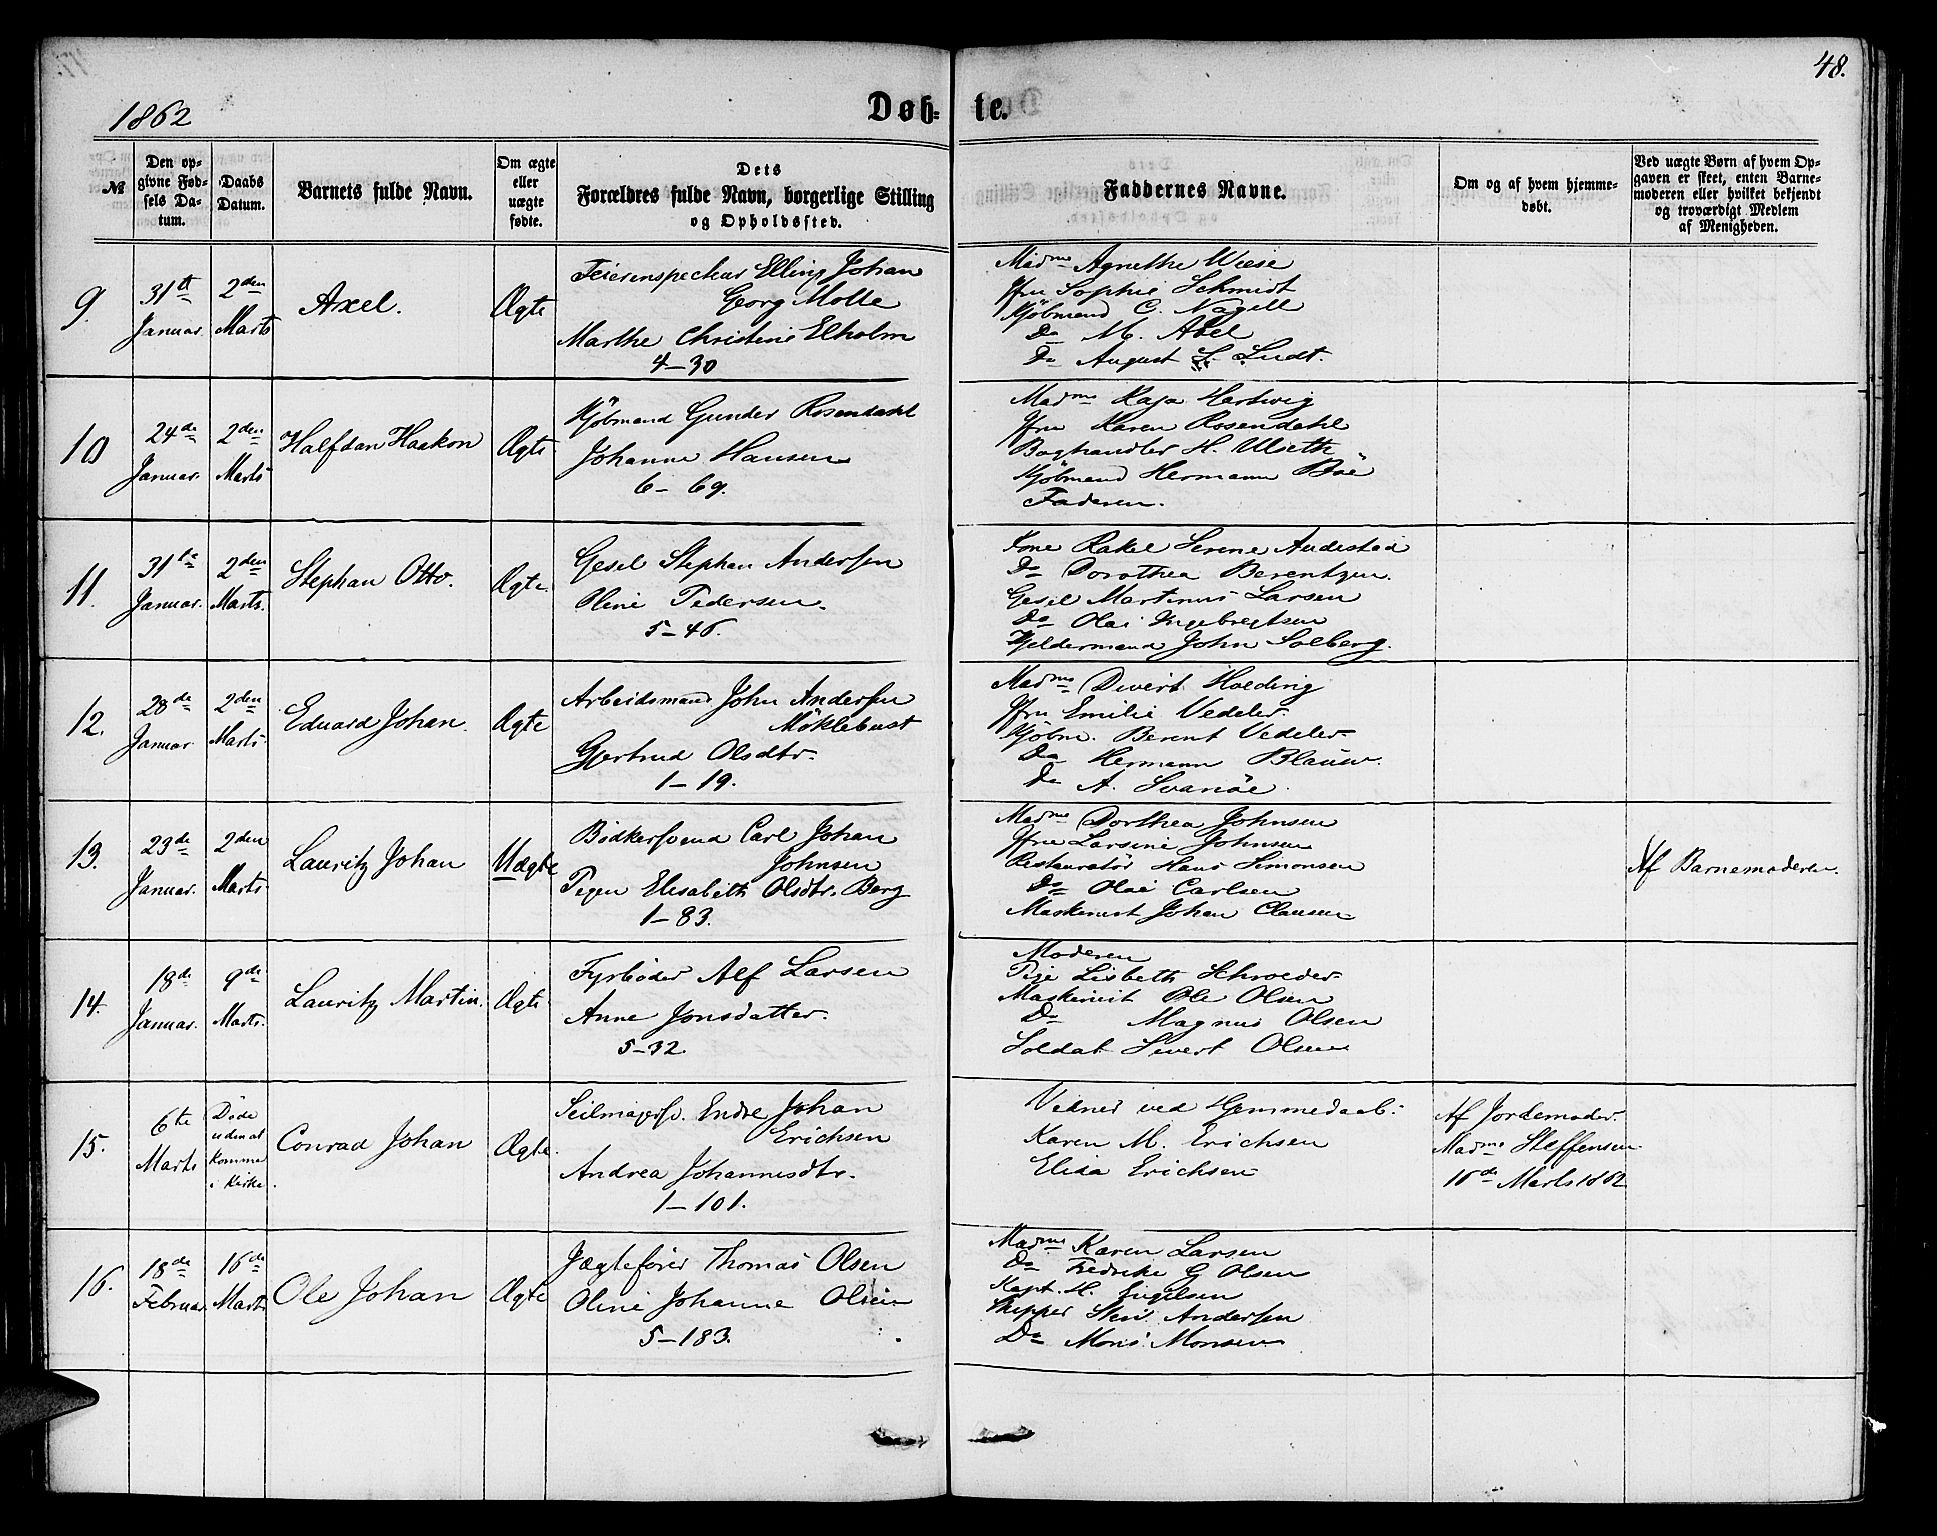 48.
1862
Døb-
te.
№
Den op-
givne Fød-
sels Da-
tum.
Daabs
Datum.
Barnets fulde Navn.
Om ægte
eller
uægte
fødte.
Dets
Forældres fulde Navn, borgerlige Stilling
og Opholdssted.
Faddernes Navne.
Om og af hvem hjemme-
døbt.
Ved uægte Børn af hvem Op-
gaven er skeet, enten Barne-
moderen eller hvilket bekjendt
og troværdigt Medlem
af Menigheden.
9.
31te
Januar.
2den
Marts
Axel.
Ægte
Feierinspecteur Elling Johan
Georg Molle
Marthe Christine Elholm
4-30
Madme Agnethe Wiese
Jfru Sophie Schmidt
Kjöbmand C. Nagell
Do M. Abel
Do August L. Ludt.
10
24de
Januar.
2den
Marts
Halfdan Haakon
Ægte
Kjöbmand Gunder Rosendahl
Johanne Hansen
6-69.
Madme Kaja Hertwig
Jfru Karen Rosendahl
Boghandler H. Ulseth
Kjöbmand Hermann Böe
Faderen.
11.
31te
Januar.
2den
Marts.
Stephan Otto.
Ægte.
Gesel Stephan Andersen
Oline Pedersen.
5-46.
Kone Rakel Serine Andestad
Do Dorothea Berentzen.
Gesel Martinus Larsen
Do Olai Ingebregtsen
Kjeldermand John Solberg.
12.
28de
Januar.
2den
Marts
Eduard Johan.
Ægte
Arbeidsmand John Andersen
Möklebust
Gjertrud Olsdtr.
1-19.
Madme Divert Holding
Jfru Emilie Vedeler.
Kjöbm. Berent Vedeler
Do Hermann Blauw.
Do A. Svanöe.
13.
23de
Januar.
2den
Marts
Lauritz Johan
Uægte
Bödkersvend Carl Johan
Johnsen
Pigen Elisabeth Olsdtr. Berg
1-83.
Madme Dorthea Johnsen
Jfru Larsine Johnsen
Restauratör Hans Simonsen
Do Olai Carlsen
Maskinist Johan Clausen
Af Barnemoderen.
14.
18de
Januar.
9de
Marts.
Lauritz Martin.
Ægte
Fyrböder Alf Larsen
Anne Jonsdatter.
5-32.
Moderen
Pige Lisbeth Schroeder
Maskinist Ole Olsen
Do Magnus Olsen
Soldat Sivert Olsen
15.
6te
Marts
Döde
uden at
komme
i Kirke.
Conrad Johan
Ægte.
Seilmagersv. Endre Johan
Erichsen
Andrea Johannesdtr.
1-101.
Vidner ved Hjemmedaab:
Karen M. Erichsen
Elida Erichsen
Af Jordemoder
Madme Steffensen
16de Marts 1862
16.
18de
Februar
16de
Marts
Ole Johan
Ægte
Jægtefører Thomas Olsen
Oline Johanne Olsen
5-183.
Madme Karen Larsen
Do Fredrike G Olsen
Kapt. H. Engelsen
Skipper Sten Andersen
Do Mons Monsen